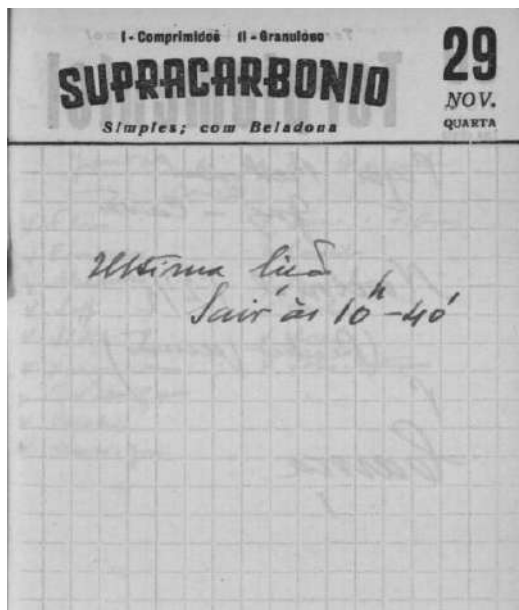 I - Comprimidos II - Granuloso
SUPRACARBONIO
Simples; com Beladona
29
NOV.
QUARTA
Ultima lição
Saír às 10h-40'